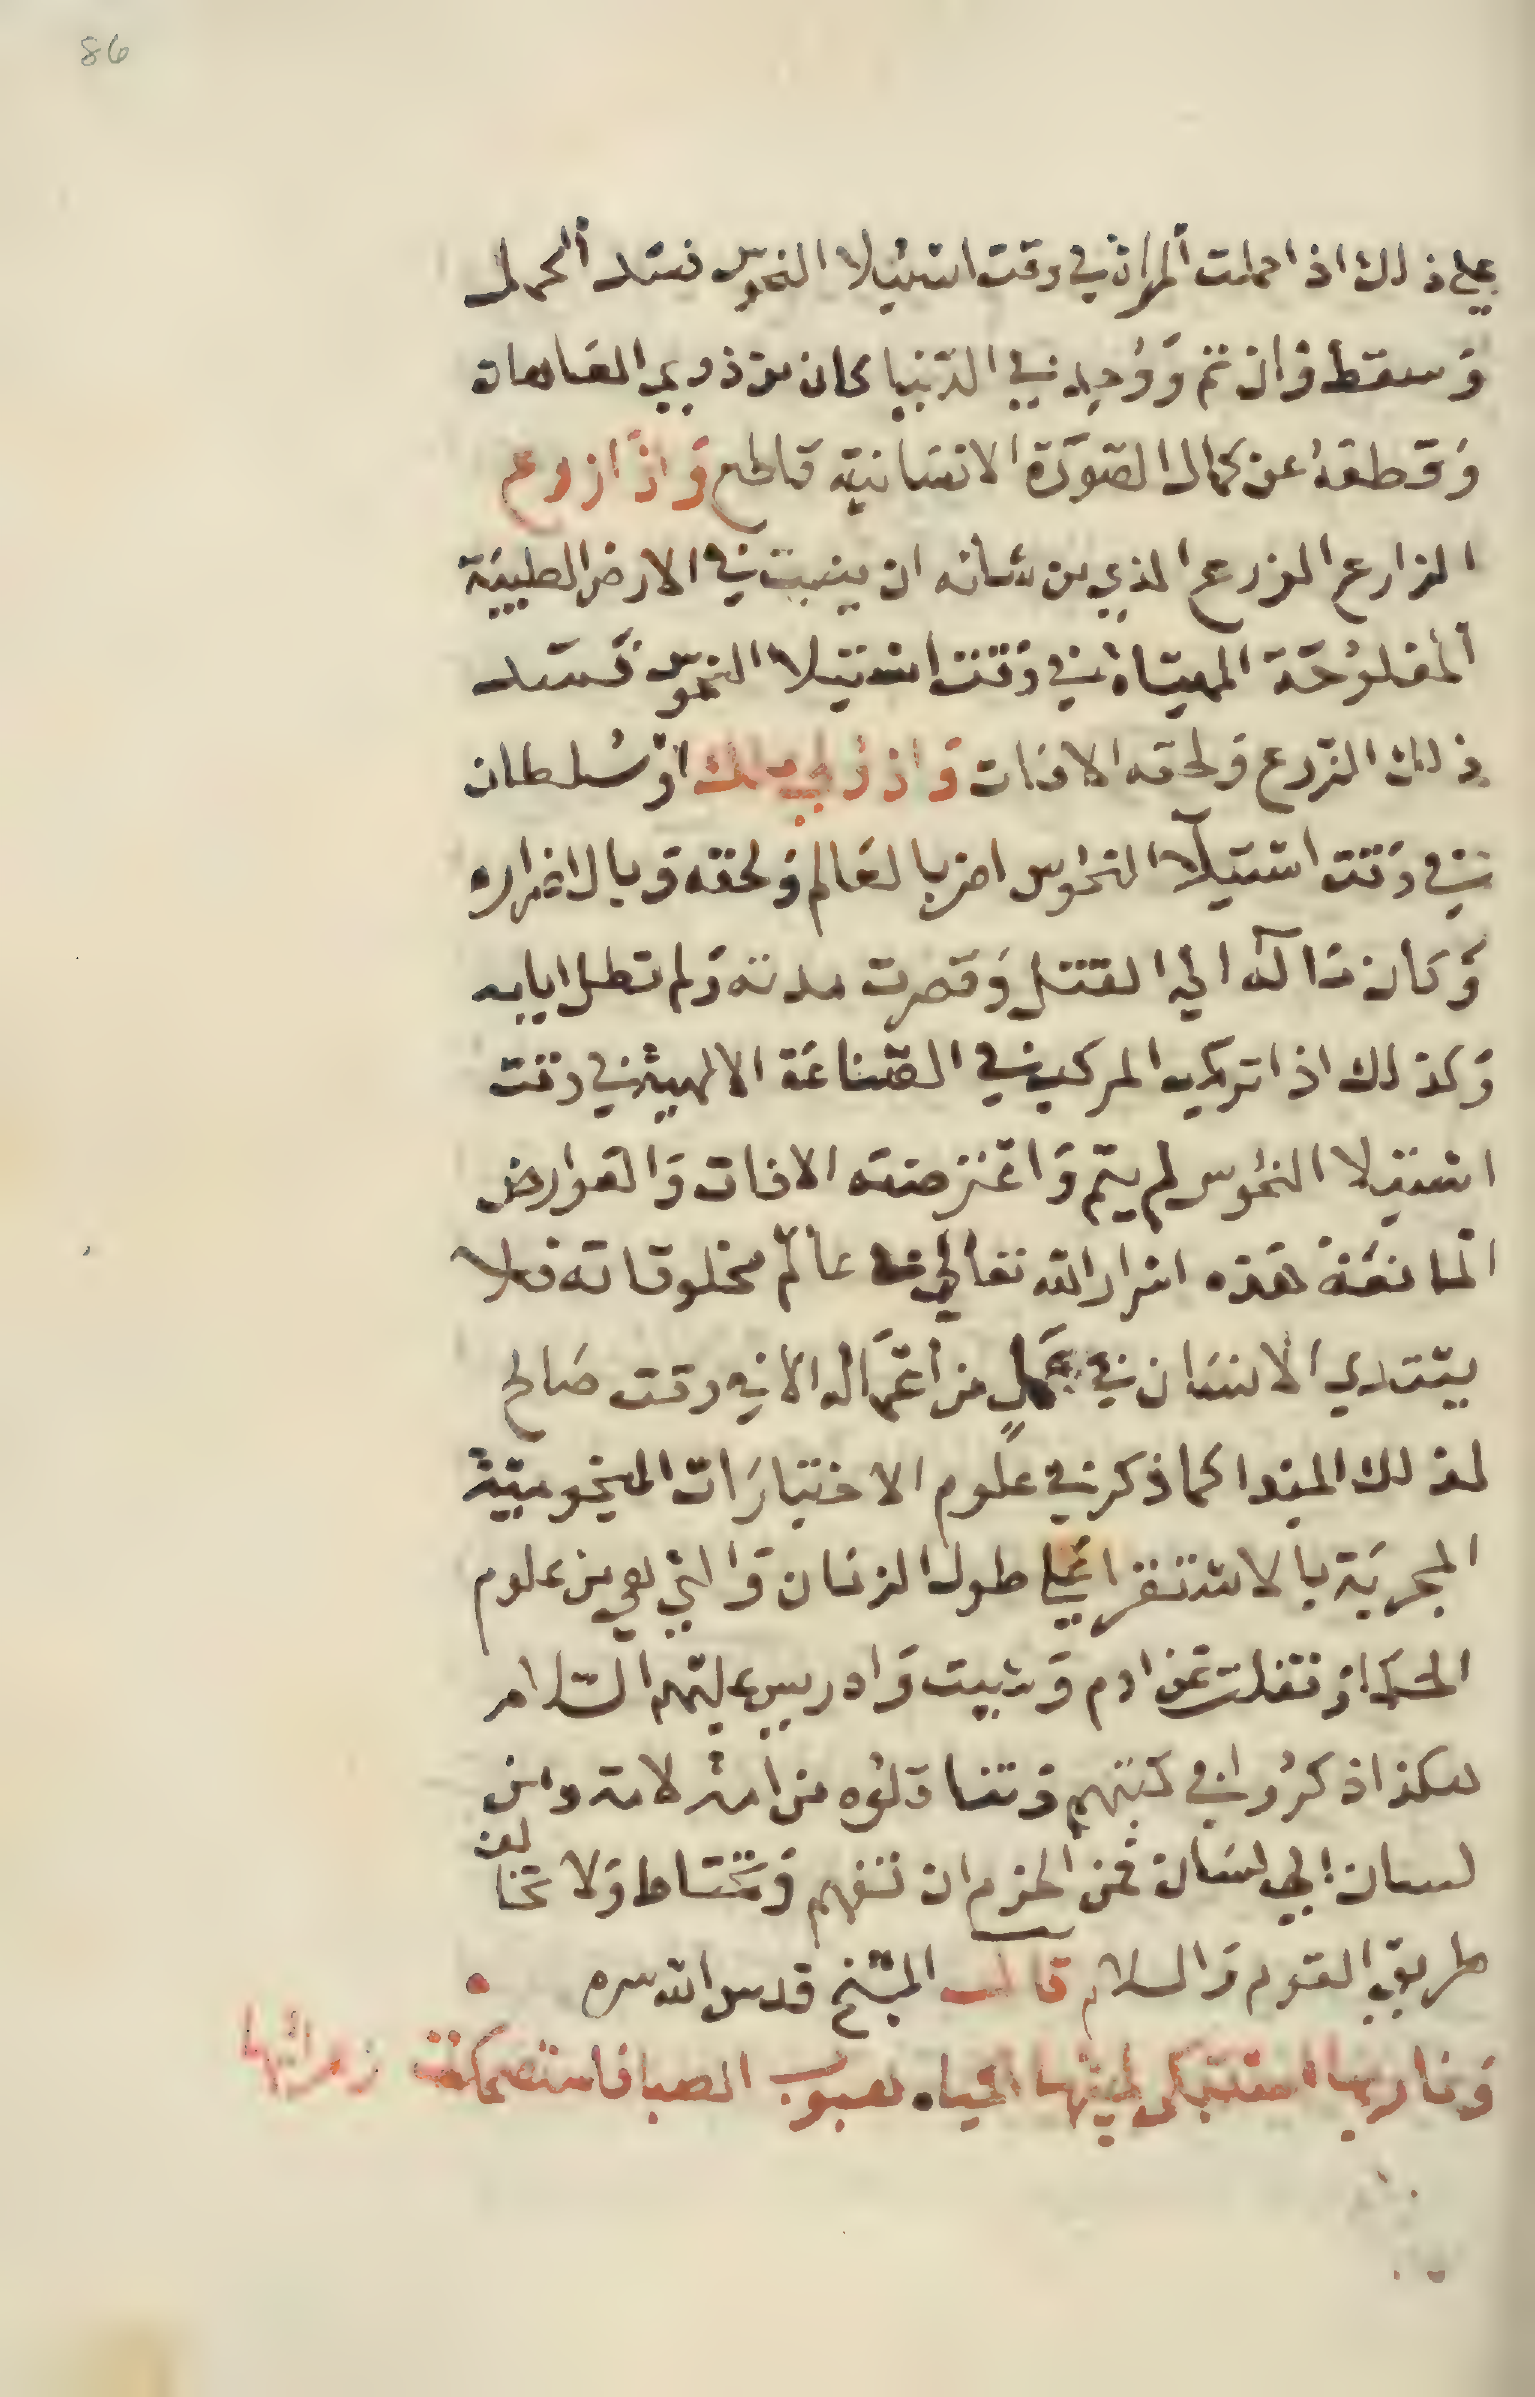 86
علي ذلك اذا حملت المراة في وقت استيلا النحوس فسد الحمل
وسقط وان تم ووجد في الدنيا كان من ذوي العاهات
وقطعه عن كمال الصورة الانسانية قاطع واذا زرع
الزارع الزرع الذي من شانه ان ينبت في الارض الطيبة
المفلوحة المهياة في وقت استيلا النحوس فسد
ذلك الزرع ولحقه الافات واذ ولي ملك او سلطان
في وقت استيلآ النحوس اضر بالعالم ولحقه وبال اضراره
وكان مآله الي القتل وقصرت مدته ولم تطل ايامه
وكذلك اذا تركب المركب في الصناعة الالهية في وقت
استيلا النحوس لم يتم واعترضته الافات والعوارض
المانعة هذه اسرار الله تعالي في عالم مخلوقاته فلا
يبتدي الانسان في عمل من اعماله الا في وقت صالح
لذلك المبدا كما ذكر في علوم الاختيارات النجومية
المجربة بالاستقرا علي طول الزمان والتي هي من علوم
الحكما ونقلت عن ادم وشيت وادريس عليهم السلام
هكذا ذكروا في كتبهم وتناولوه من امة لامة ومن
لسان الي لسان فمن الحزم ان تفهم وتحتاط ولا تخالف
طريق القوم والسلام قال الشيخ قدس الله سره
الحياه هبوب الصبا فاستضحكت زهراتها